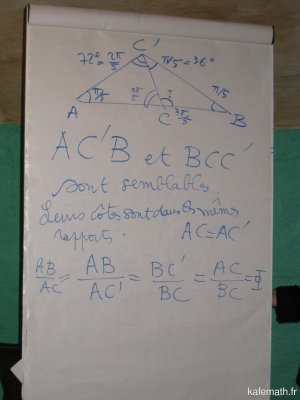 C'
72° = 2π/5
π/5 = 36°
π/5
2π/5
?
π/5
A
C
B
AC'B et BCC'
sont semblables.
Leurs côtés sont dans les mêmes
rapports.
AC = AC'
AB/AC = AB/AC' = BC'/BC = AC/BC = Φ
kafemath.fr